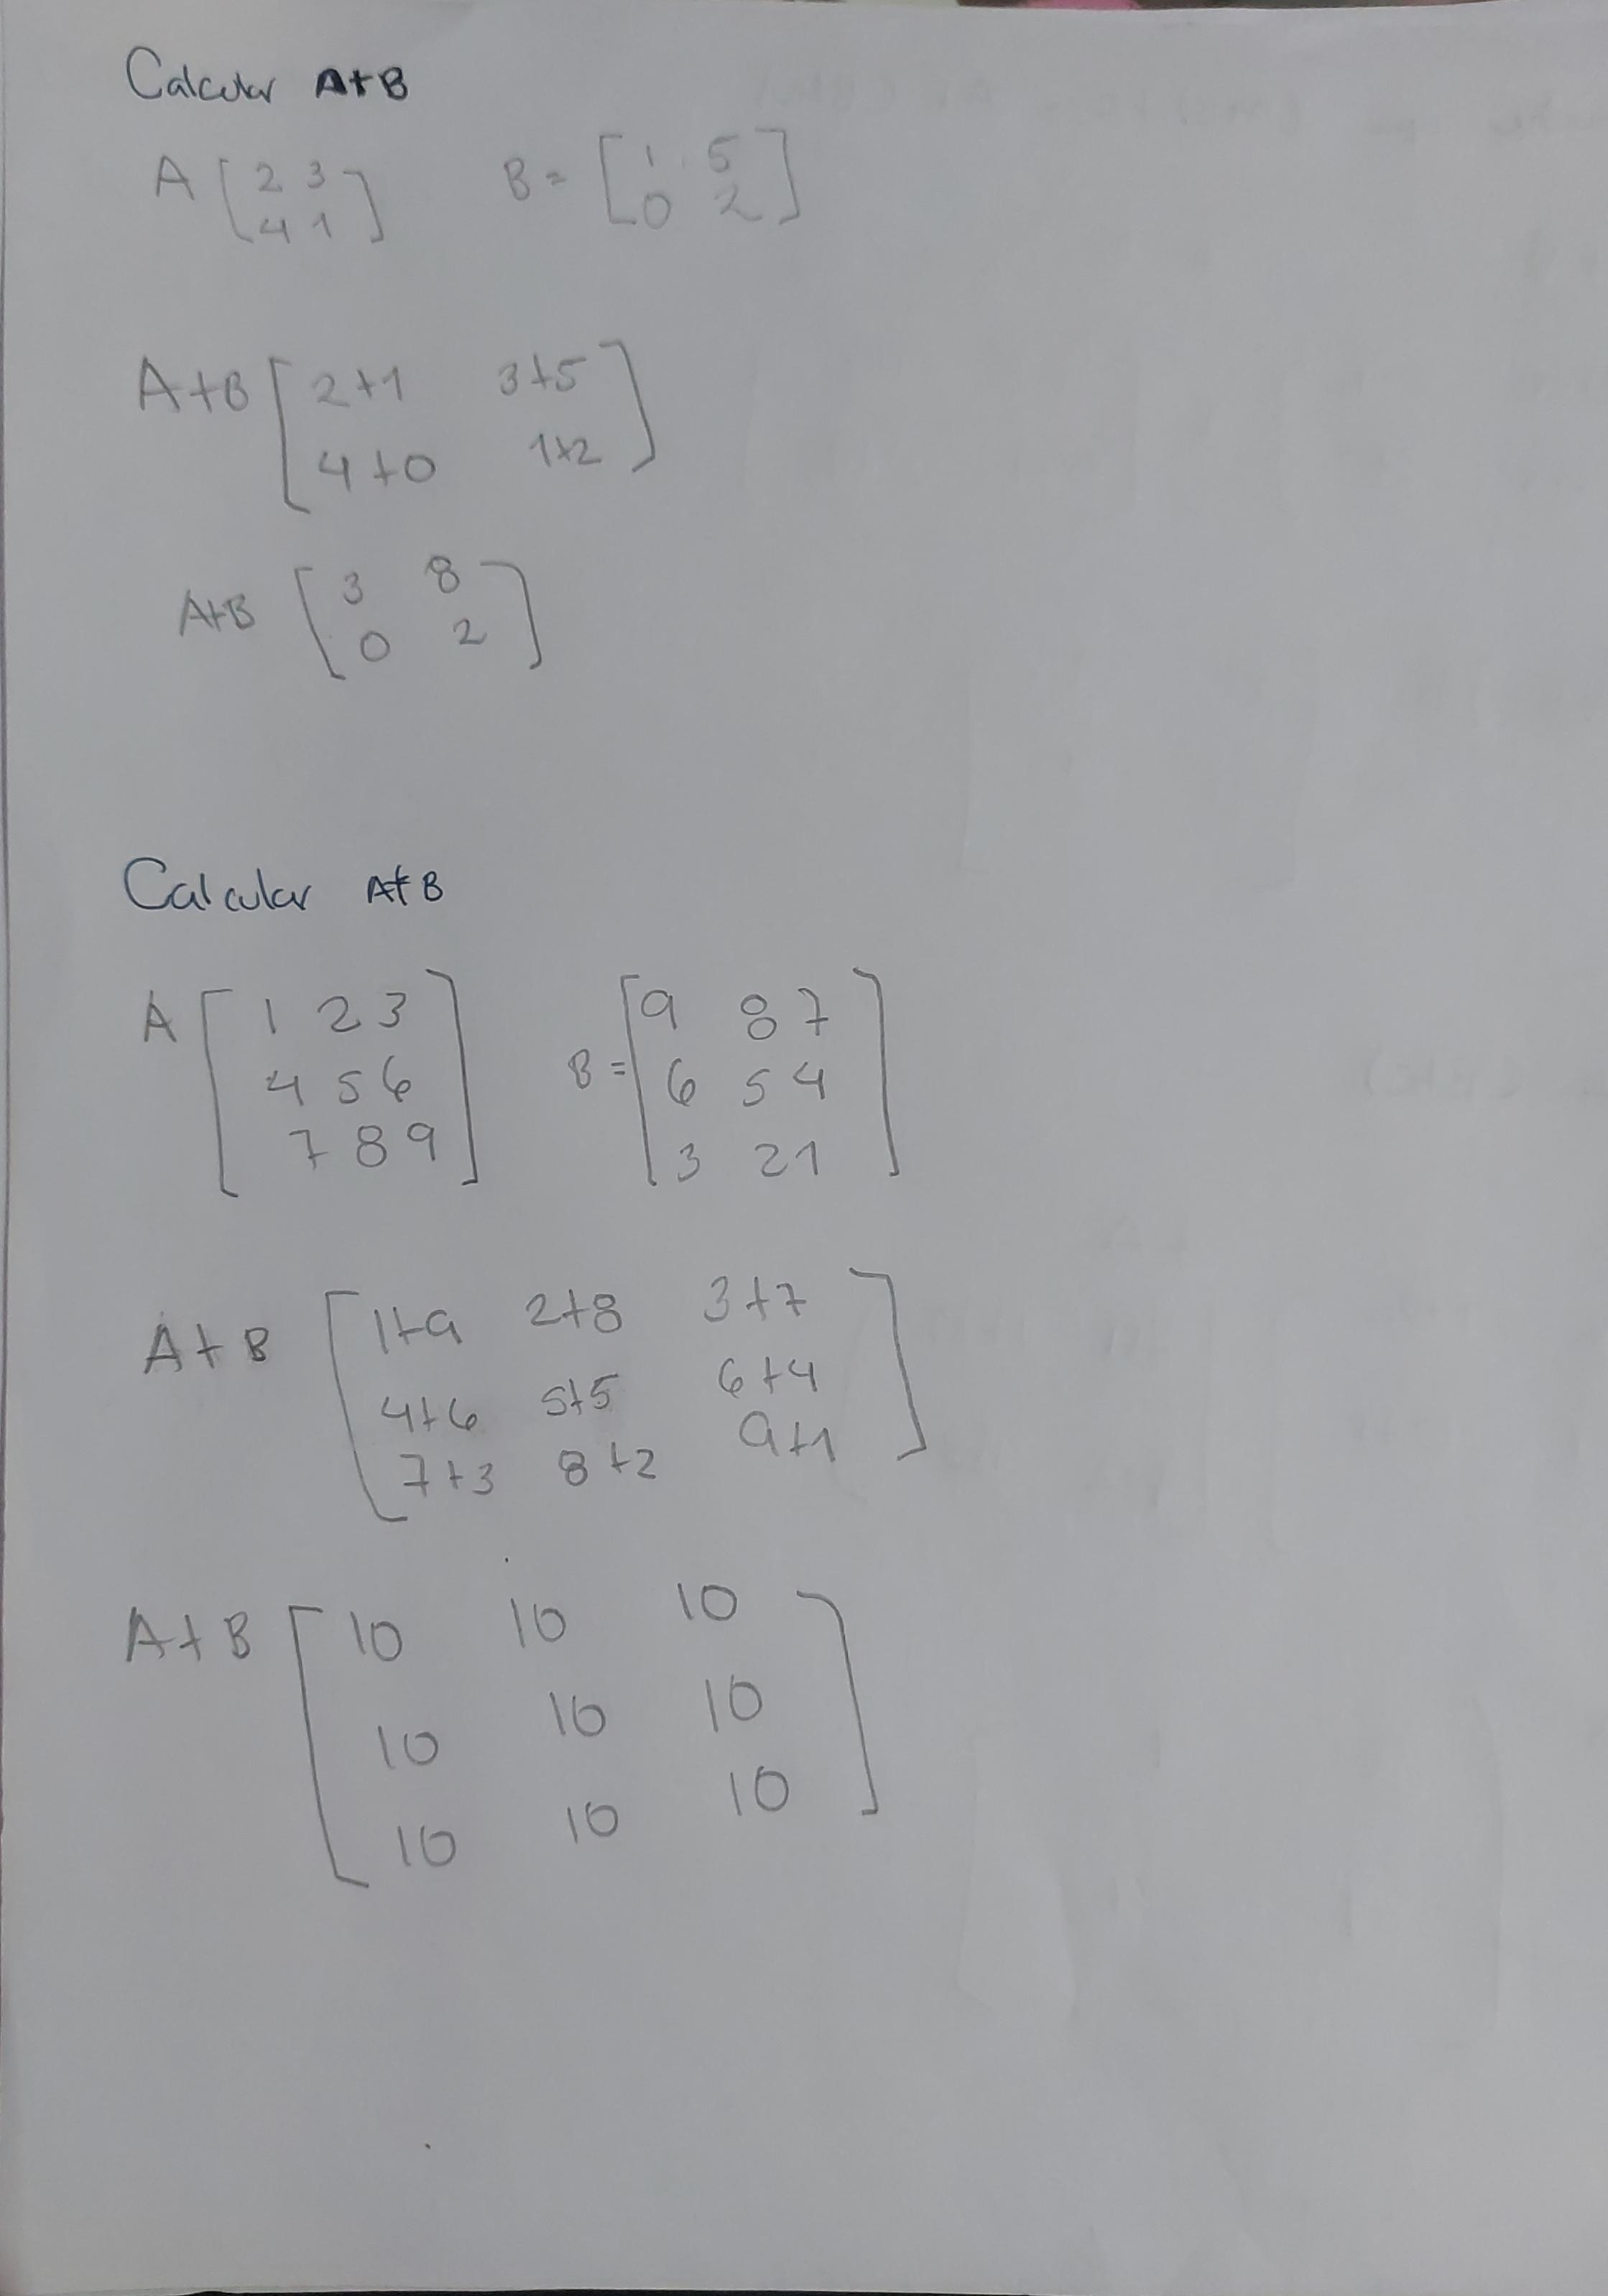 Calcular A+B
A [ 2 3    B = [ 1 5
4 1 ]    0 2 ]
A+B [ 2+1 3+5
4+0 1+2 ]
A+B [ 3 8
0 2 ]
Calcular A+B
A [ 1 2 3 ]    [ 9 8 7 ]
4 5 6    B = 6 5 4
7 8 9    3 2 1
A+B [ 1+9 2+8 3+7 ]
4+6 5+5 6+4
7+3 8+2 9+1
A+B [ 10 10 10 ]
10 10 10
10 10 10